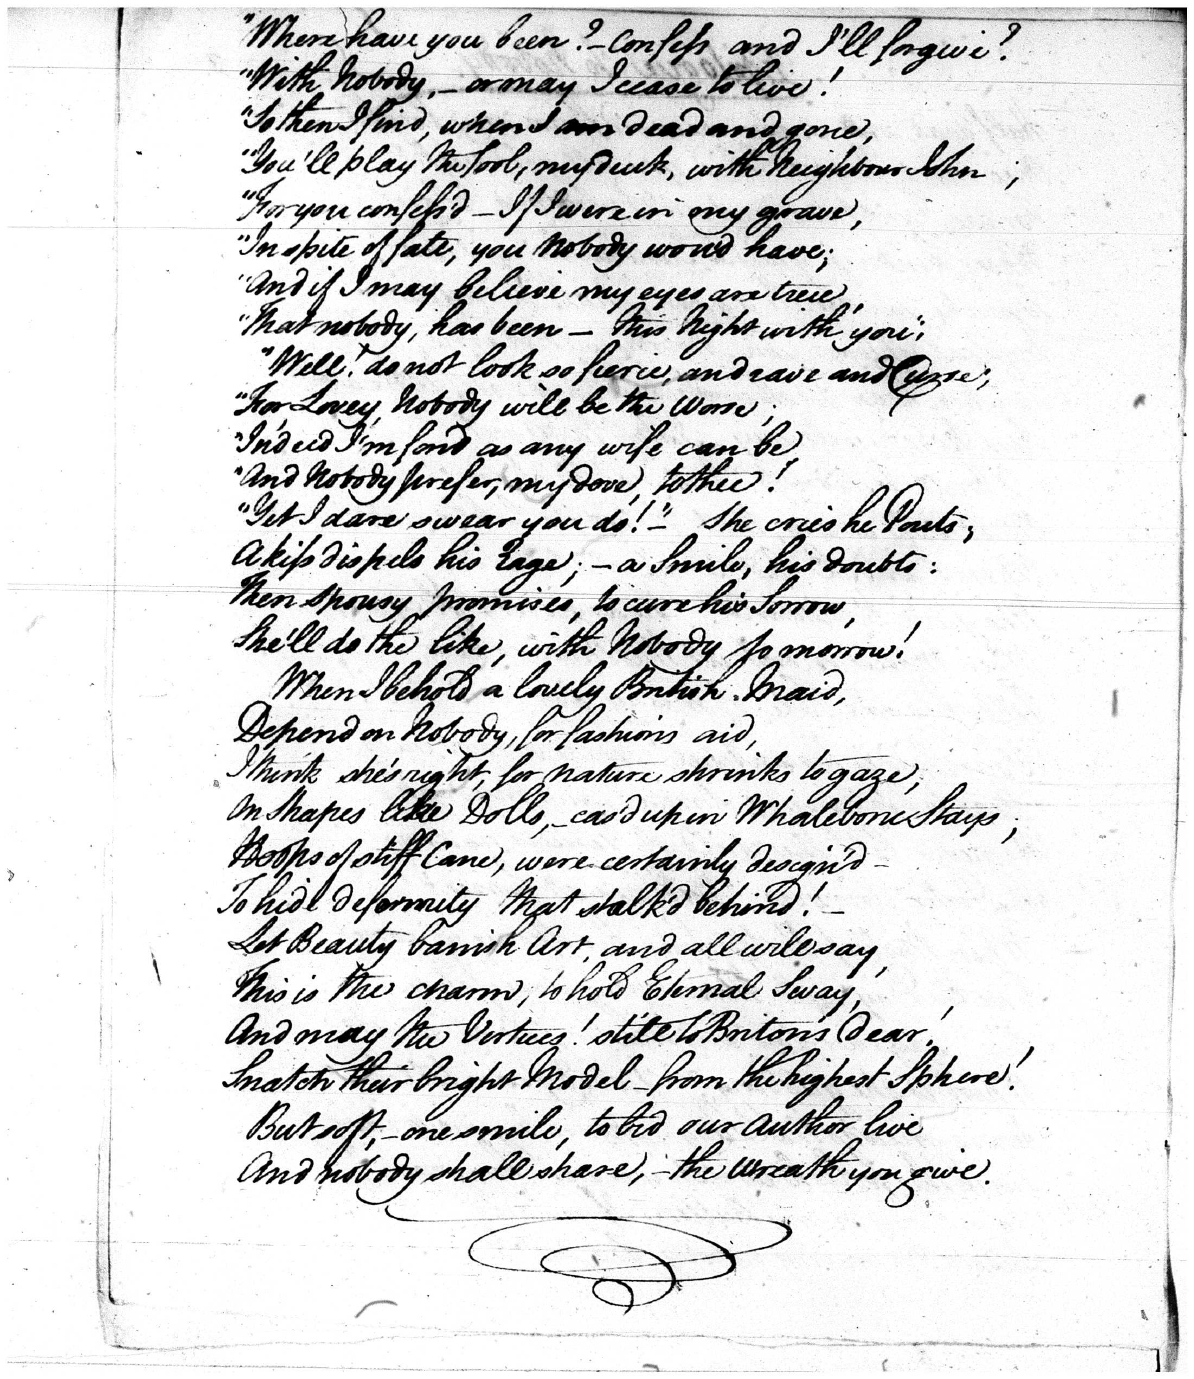 "Where have you been? – Confess and I'll forgive?
"With Nobody, – or may I cease to live!
"So then I find, when I am dead and gone,
"You'll play the fool, my duck, with Neighbour John;
"For you confess'd – If I were in my grave,
"In spite of fate, you Nobody wou'd have;
"And if I may believe my eyes are true,
"That nobody, has been – this Night with you";
"Well! do not look so fierce, and rave and Curse;
"For, Lovey, Nobody will be the Worse;
"Indeed I'm fond as any wife can be,
"And Nobody prefer, my dove, to thee!
"Yet I dare swear you do!" – She cries he Pouts;
A kiss dispels his Rage; – a Smile, his doubts:
Then Spousy promises, to cure his Sorrow,
She'll do the like, with Nobody to morrow!
When I behold a lovely British Maid,
Depend on Nobody, for fashions aid,
I think she's right, for nature shrinks to gaze,
On Shapes like Dolls, – cas'd up in Whalebone Stays;
Hoops of stiff Cane, were certainly design'd –
To hide deformity that stalk'd behind! –
Let Beauty banish Art, and all will say,
This is the charm, to hold Eternal Sway,
And may the Virtues! still to Britons dear!
Snatch their bright Model – from the highest Sphere!
But soft, – one smile, to bid our Author live
And nobody shall share, – the Wreath you give.